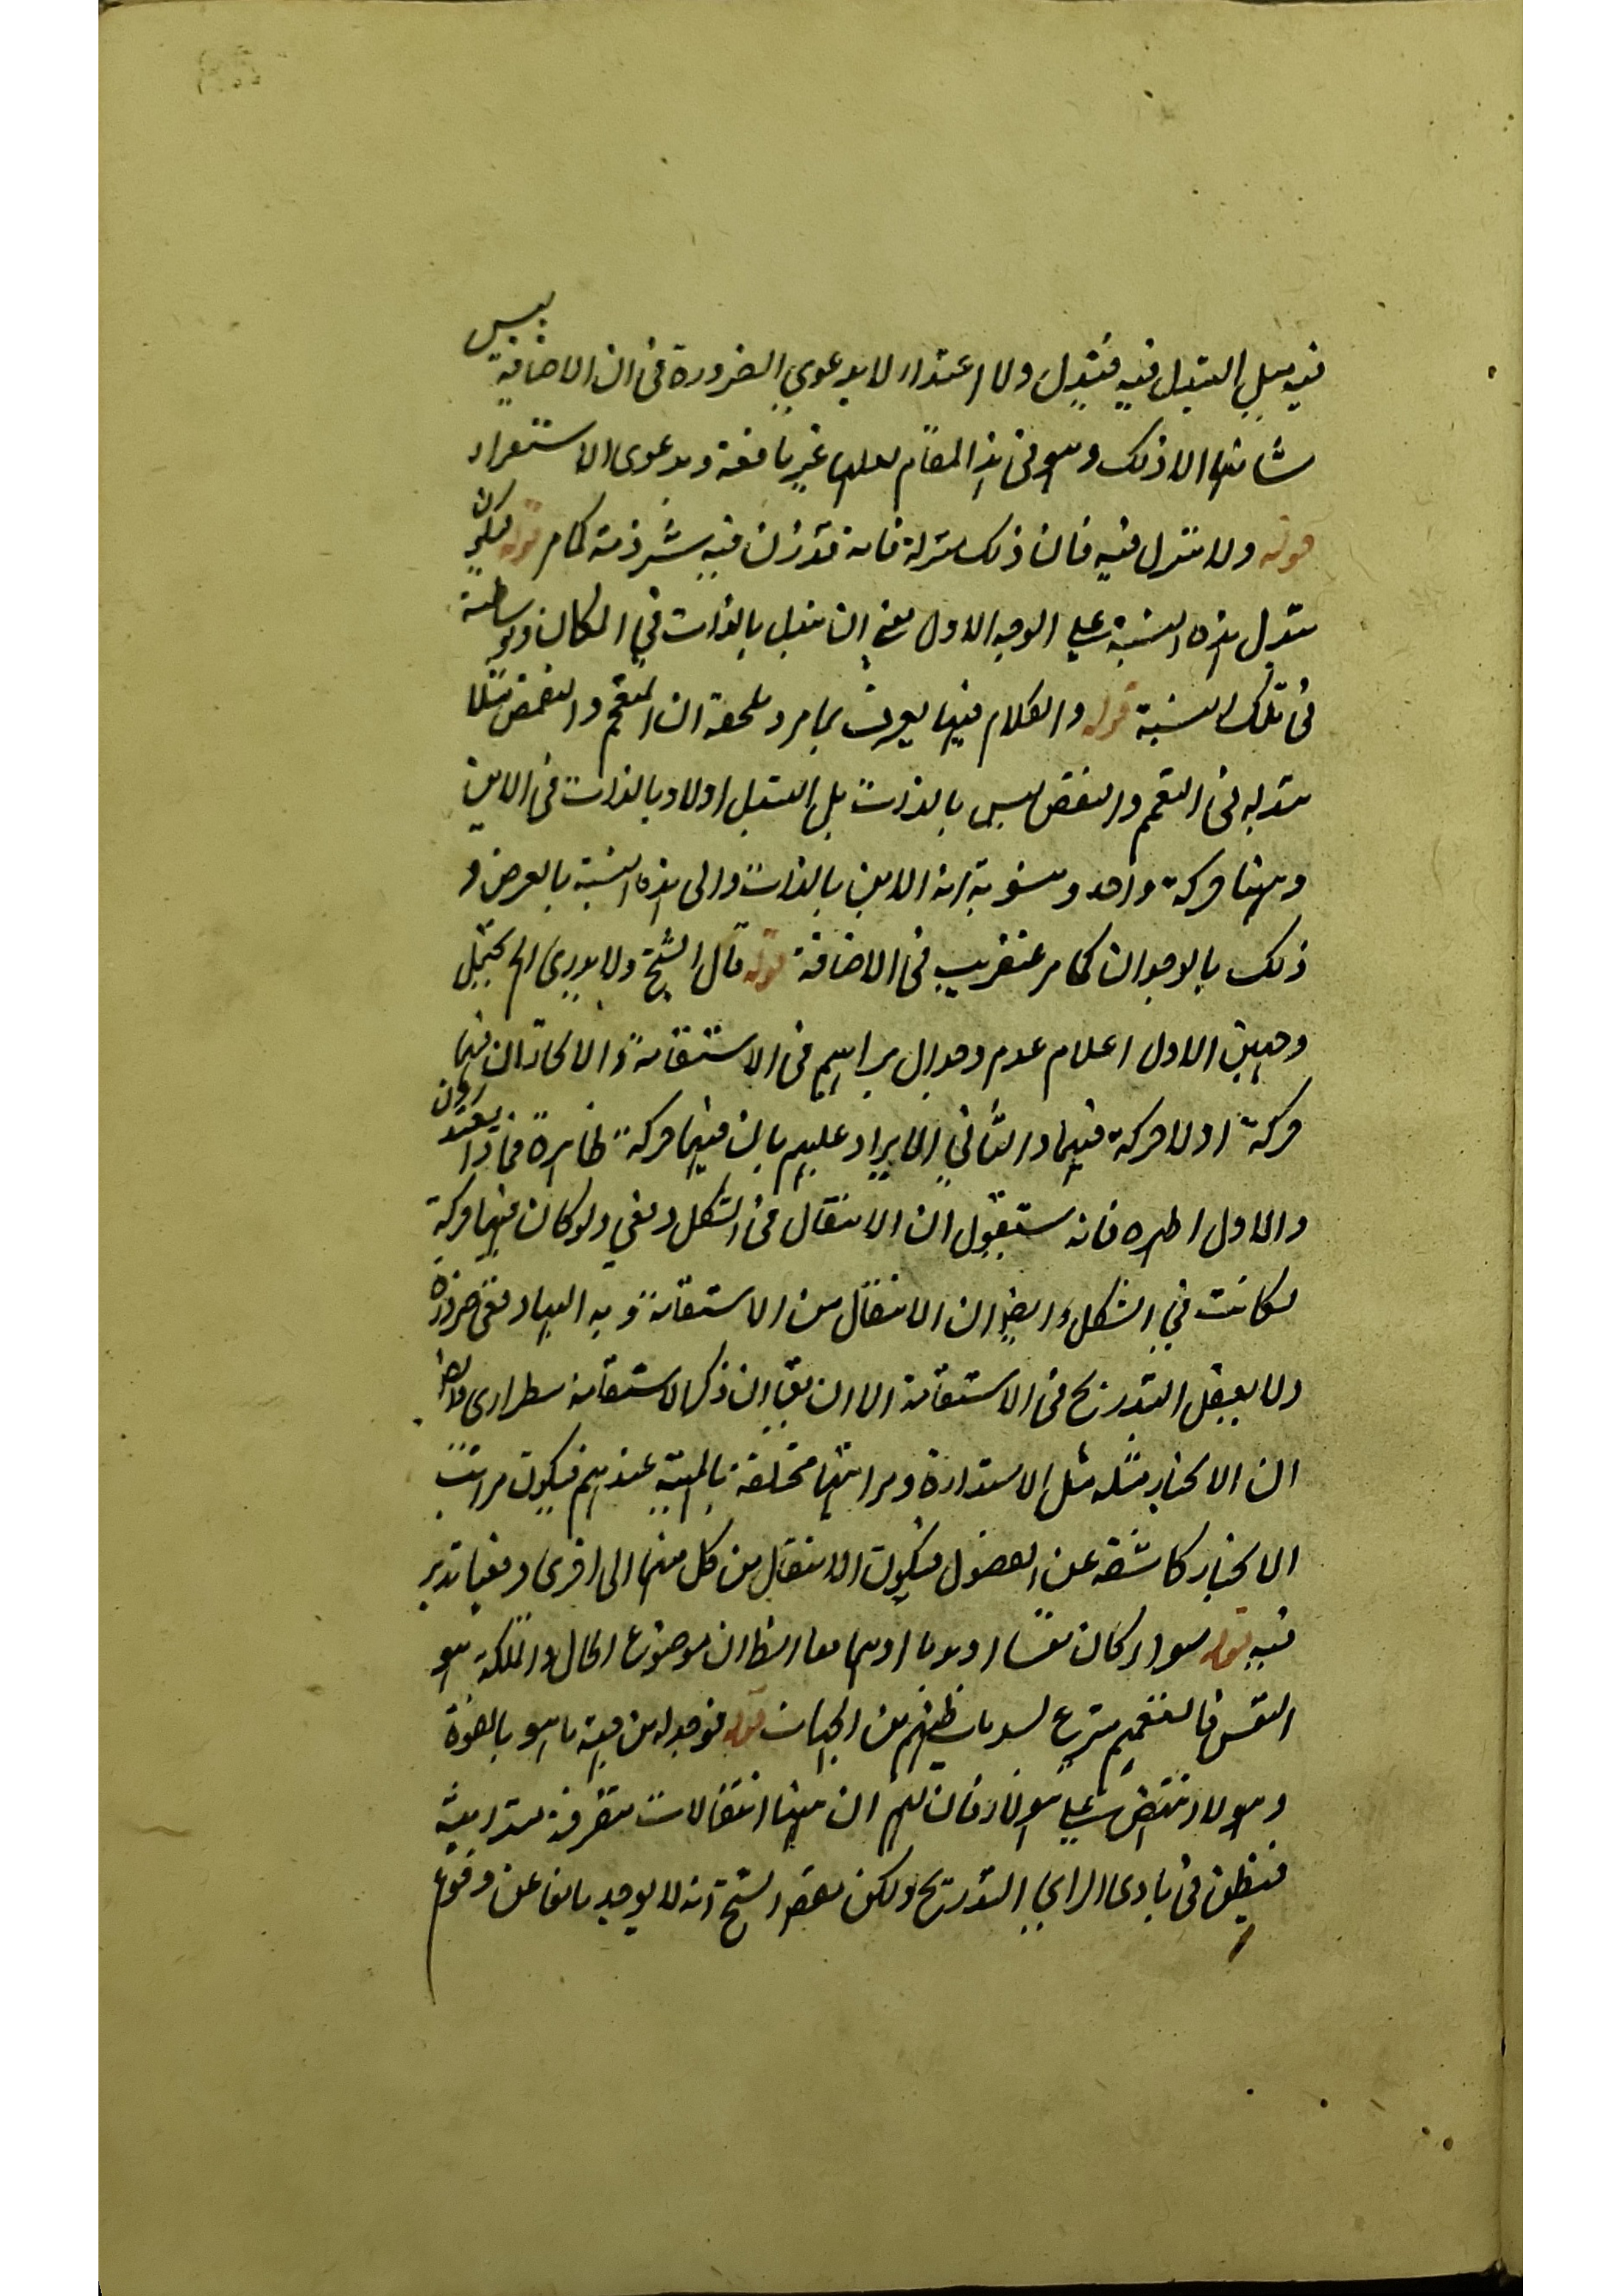 فيه بل التبدل فيه فتبدل ولا اعتداد الا بدعوى الضرورة في ان الاضافة ليس
شانها الا ذلك وهو في هذا المقام لعلها غير نافعة وبدعوى الاستقراء
قوله ولا متزل فيه فان ذلك منزلة فانه قد زل فيه شرذمة كما مر قوله فيكون
تبدل هذه النسبة على الوجه الاول يعني ان تبدل بالذات في المكان وبواسطة
في تلك النسبة قوله والكلام فيها يعرف بما مر وملحقه ان التعمم والتقمص مثلا
تبدله في التعمم والتقمص ليس بالذات بل التبدل اولا وبالذات في الاين
وههنا حركة واحدة منسوبة الى الاين بالذات والى هذه النسبة بالعرض و
ذلك بالوجدان كما مر عنقريب في الاضافة قوله قال الشيخ ولا يدرى الخ يحتمل
وجهين الاول اعلام عدم وجدان براهينهم في الاستقامة والانحناء ان فيها
حركة او لا حركة فيهما والثاني الايراد عليهم بان فيهما حركة ظاهرة فماذا يعتذرون
والاول اظهر فانه ستقول ان الانتقال في الشكل دفعي ولو كان فيها حركة
لكانت في الشكل وايضا ان الانتقال من الاستقامة و به اليها دفعي ضرورة
ولا يعقل التدريج في الاستقامة الا ان يق ان ذكر الاستقامة استطرادي وايضا
ان الانحناء مثله مثل الاستدارة ومراتبها مختلفة بالمهية عندهم فيكون مراتب
الانحناء كاشفة عن الفصول فيكون الانتقال من كل منها الى اخرى دفعيا تدبر
فيه قوله سواء كان نفسا او بدنا او هما معا الظ ان موضوع الحال والملكة هو
النفس فالتعميم تبرع لسد ما يظنهم من الجهات قوله فتوجه له من جهة ما هو بالقوة
وهؤلاء ينتقض على هؤلاء فان لهم ان ههنا انتقالات متفرقة متدانية
فيظن في بادى الراى التدريج ولكن مقصود الشيخ انه لا يوجد مانعا عن وقوع